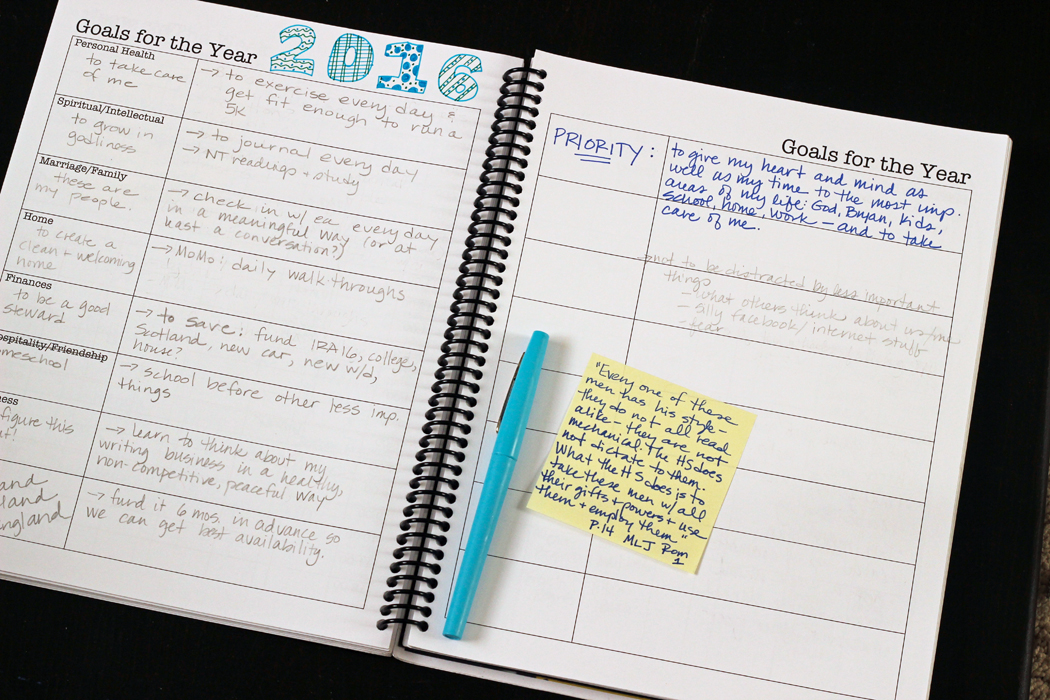 Goals for the Year 2016
Personal Health
to take care
of me
→ to exercise every day &
get fit enough to run a
5k
Spiritual/Intellectual
to grow in
godliness
→ to journal every day
→ NT readings + study
Marriage/Family
these are
my people.
→ check in w/ ea. every day
in a meaningful way (or at
least a conversation?)
Home
to create a
clean + welcoming
home
→ MoMo: daily walk-throughs
Finances
to be a good
steward
→ to save: fund IRA 16, college,
Scotland, new car, new w/d,
house?
ospitality/Friendship
meschool
→ school before other less imp.
things
ness
figure this
t?
→ learn to think about my
writing business in a healthy,
non-competitive, peaceful way
and
land
ngland
→ fund it 6 mos. in advance so
we can get best availability.
Goals for the Year
PRIORITY:
to give my heart and mind as
well as my time to the most imp.
areas of my life: God, Bryan, kids,
school, home, work — and to take
care of me.
→ not to be distracted by less important
things
- what others think about us/me
- silly facebook/internet stuff
- fear
"Every one of these
men has his style –
they do not all read
alike – they are not
mechanical. The HS does
not dictate to them.
What the HS does is to
take these men w/ all
their gifts + powers + use
them + employ them"
p.14 MLJ Rom
1